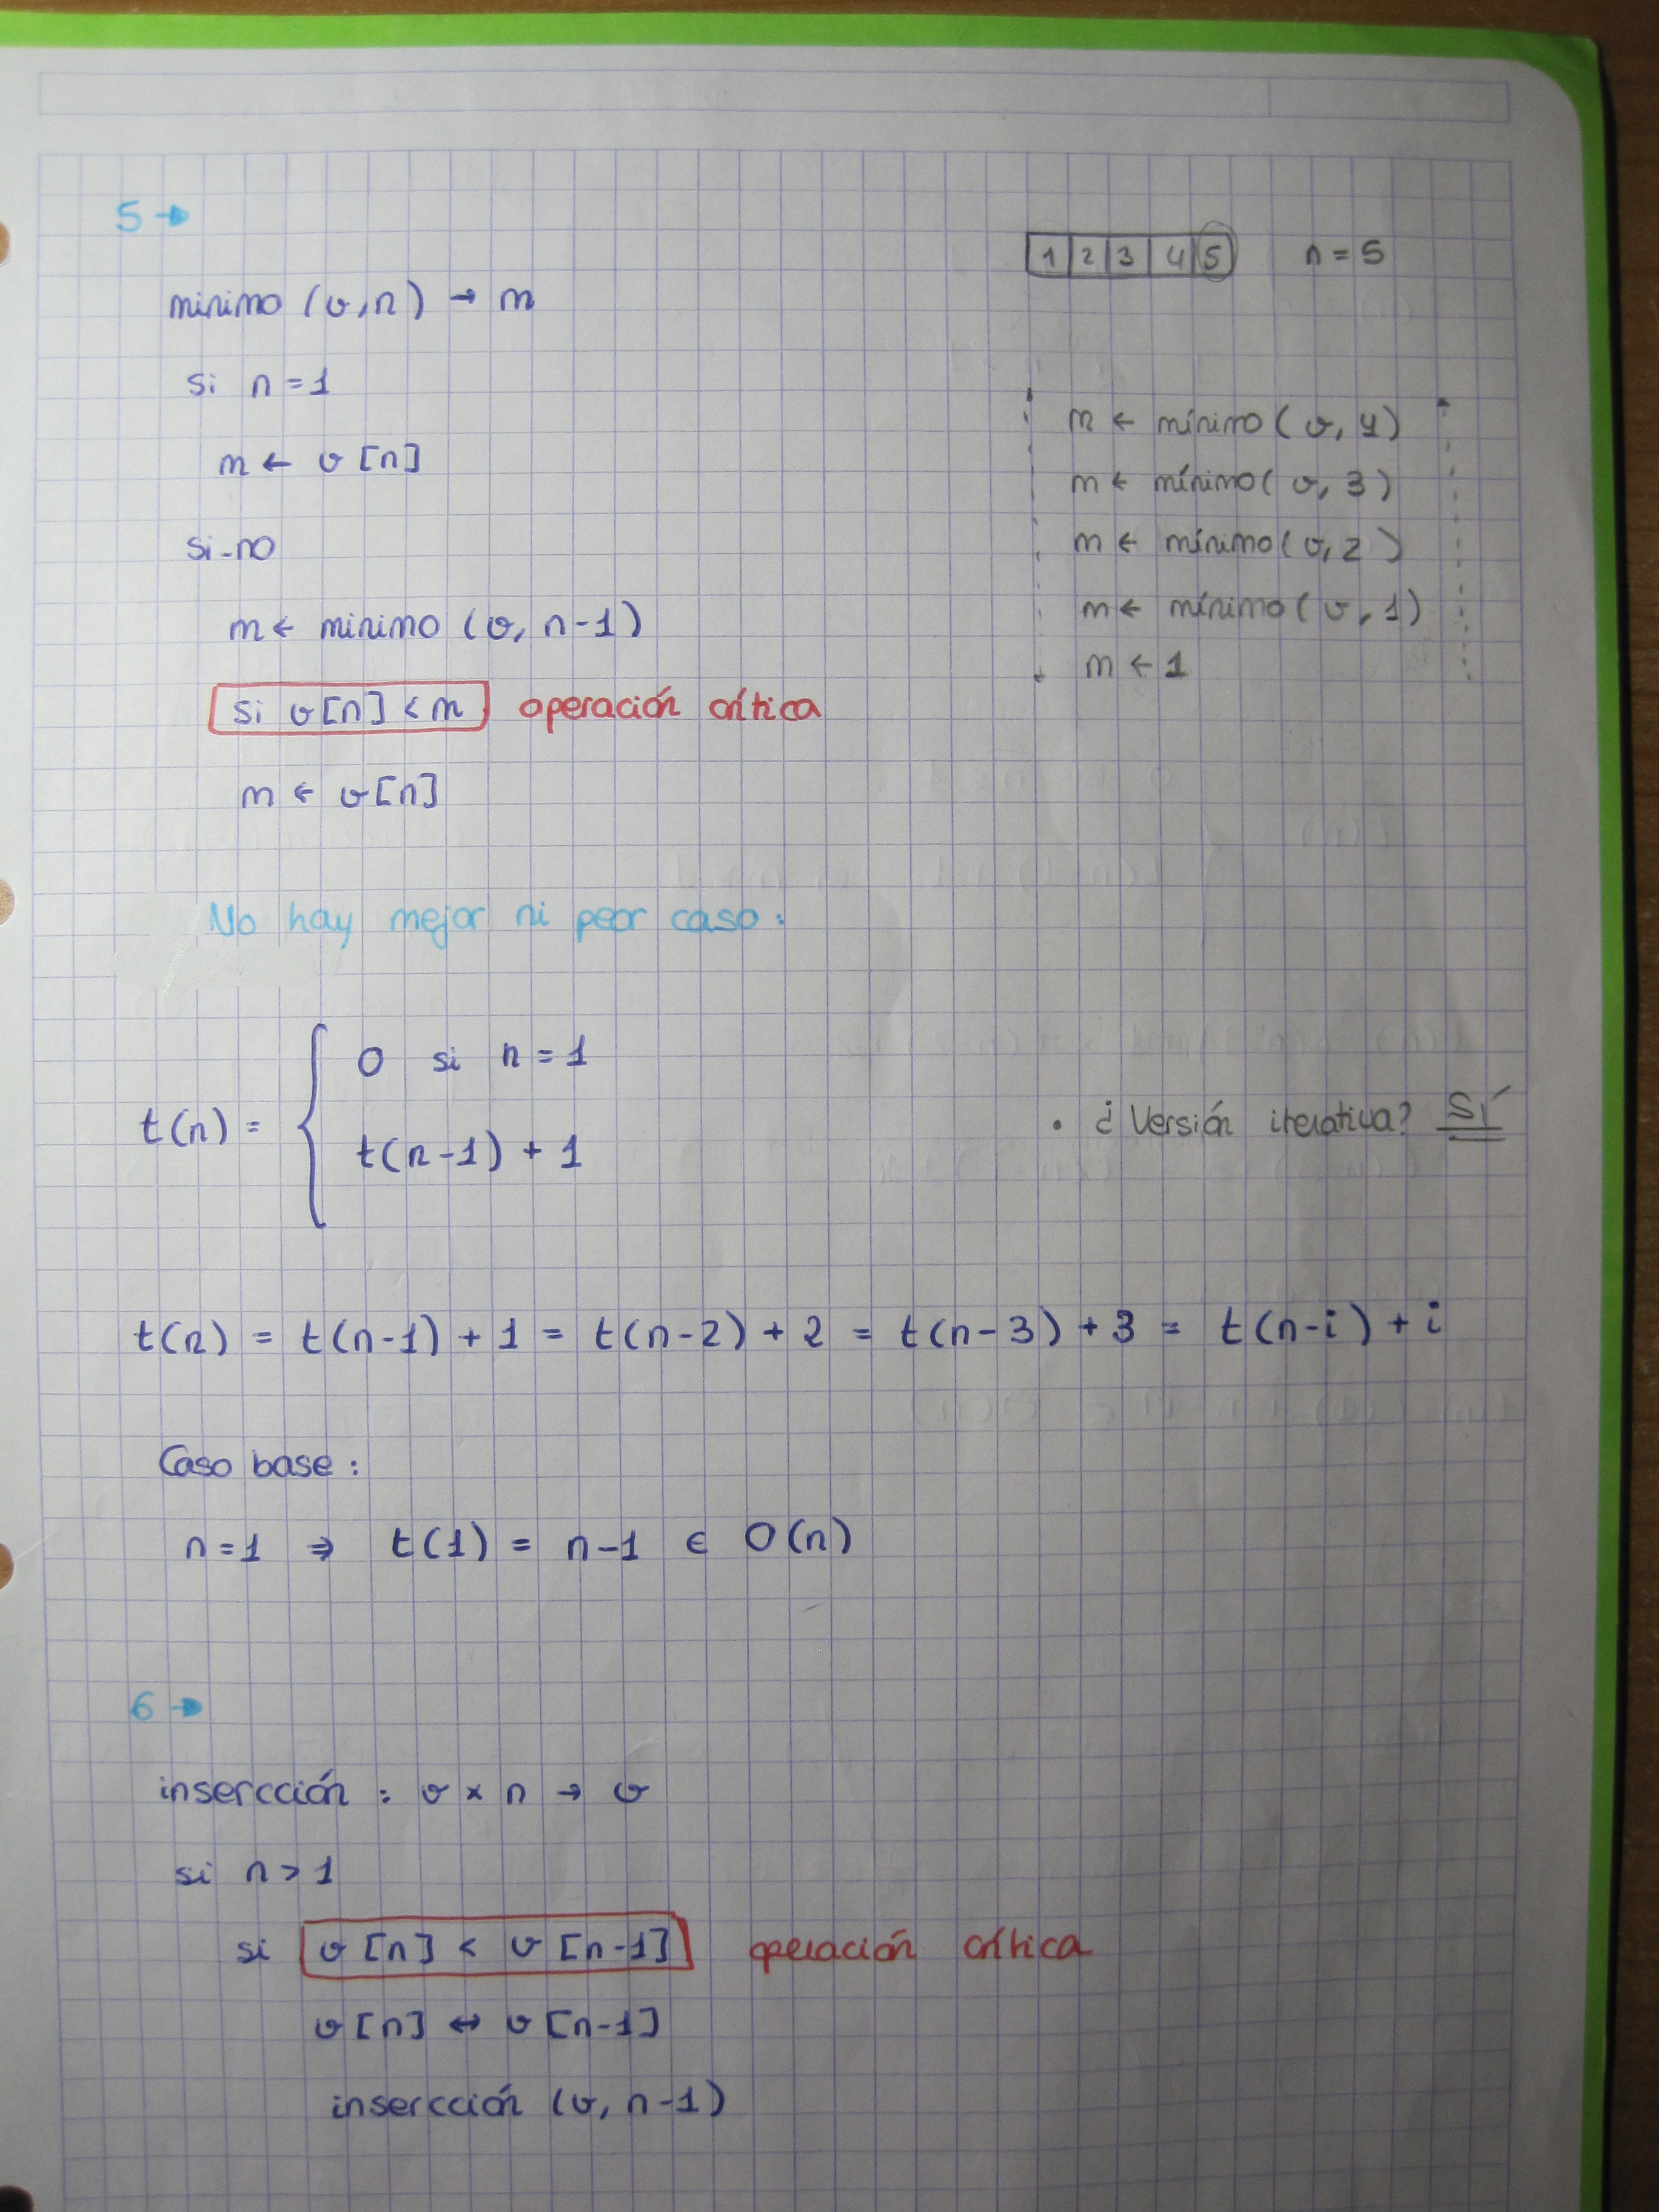 5 →
1 2 3 4 5 n = 5
minimo (v, n) → m
si n = 1
m ← v [n]
si-no
m ← minimo (v, n-1)
si v[n] < m operación crítica
m ← v[n]
m ← mínimo (v, 4)
m ← mínimo (v, 3)
m ← mínimo (v, 2)
m ← mínimo (v, 1)
m ← 1
No hay mejor ni peor caso:
t(n) = { 0 si n = 1
t(n-1) + 1
• ¿Versión iterativa? SÍ
t(n) = t(n-1) + 1 = t(n-2) + 2 = t(n-3) + 3 = t(n-i) + i
Caso base:
n = 1 ⇒ t(1) = n-1 ∈ O(n)
6 →
insercción : v × n → v
si n > 1
si v [n] < v [n-1] operación crítica
v [n] ↔ v [n-1]
insercción (v, n-1)